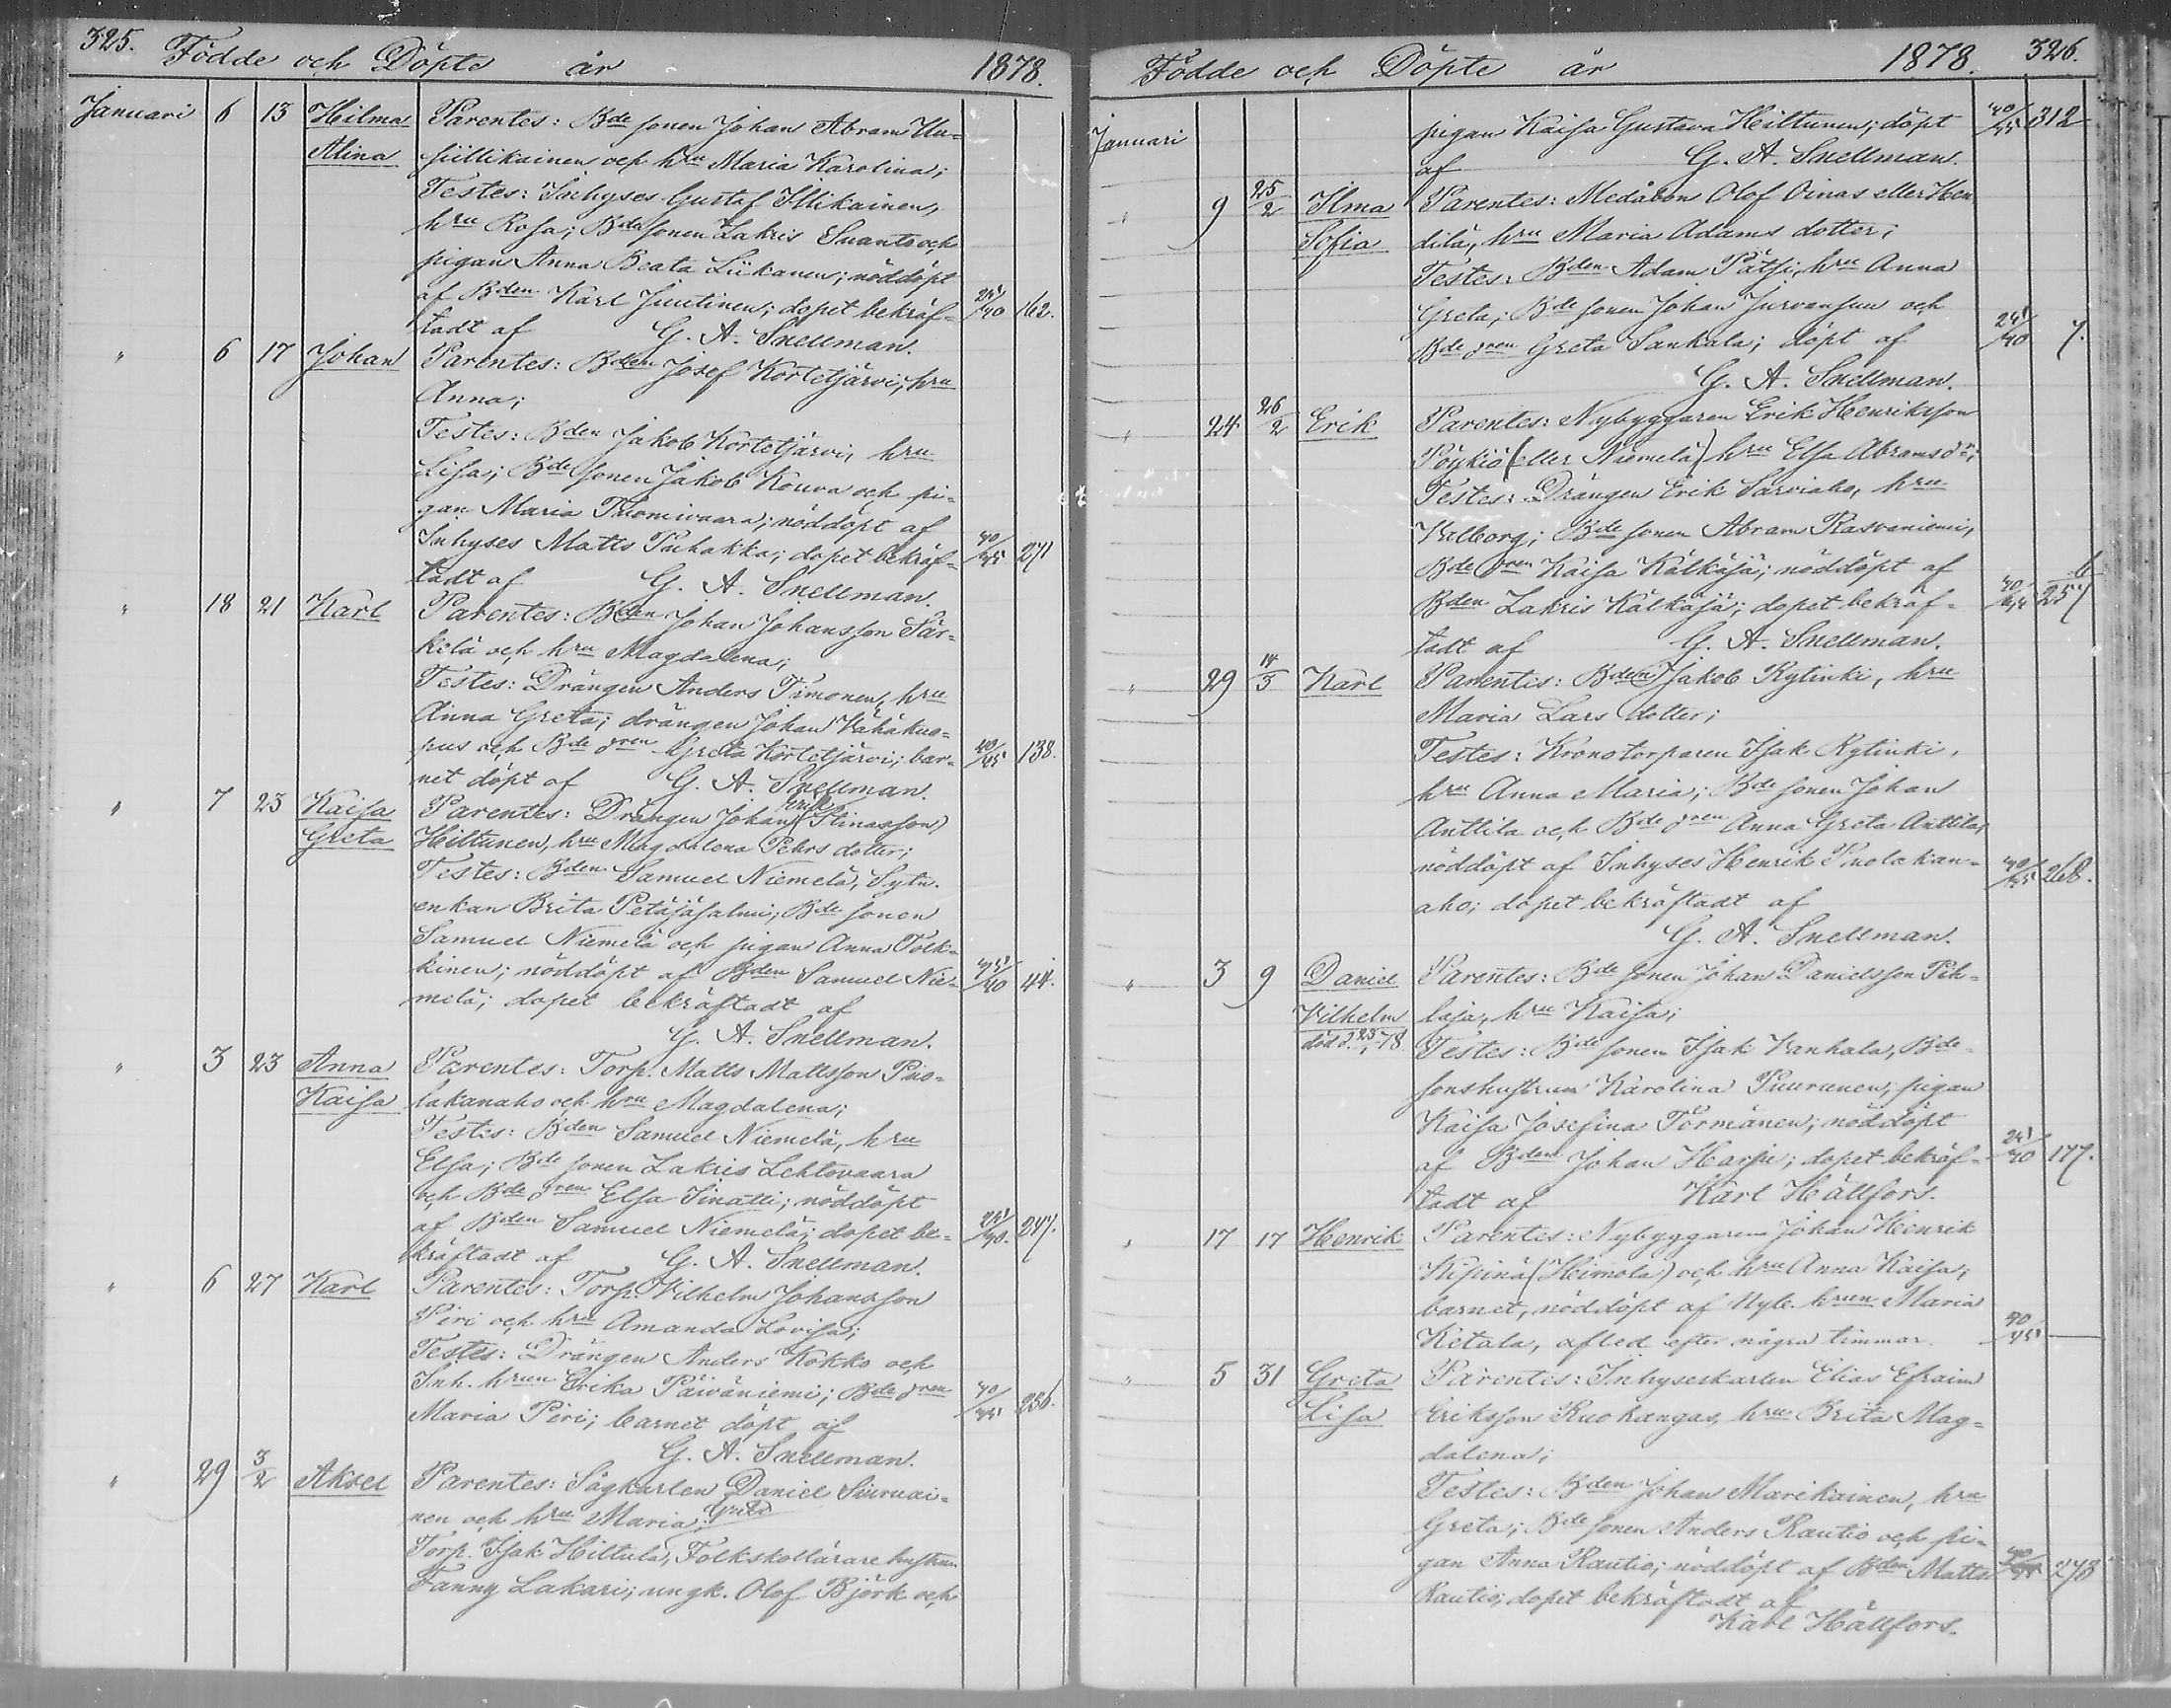 325. Födde och Döpte år 1878.
Januari 6 13 Hilma Parentes: Bde sonen Johan Abram Uu-
Alina siillikainen och hru Maria Karolina;
Testes: Inhyses Gustaf Illikainen,
hru Rosa; Bde sonen Zakris Suanto och
pigan Anna Beata Liikanen; nöddöpt
af Bden Karl Juutinen; dopet bekräf- 35/40 162.
tadt af G. A. Snellman.
" 6 17 Johan Parentes: Bden Josef Kortetjärvi, hru
Anna;
Testes: Bden Jakob Kortetjärvi, hru
Lisa; Bde sonen Jakob Kouva och pi-
gan Maria Tuomivaara; nöddöpt af
Inhyses Matts Puhakka; dopet bekräf- 40/45 271
tadt af G. A. Snellman.
" 18 21 Karl Parentes: Bden Johan Johansson Sär-
kelä och hru Magdalena;
Testes: Drängen Anders Timonen, hru
Anna Greta; drängen Johan Vähäkuo-
pus och Bde dren Greta Kortetjärvi; bar- 40/45 138.
net döpt af G. A. Snellman.
" 7 23 Kaisa Parentes: Drängen Johan Erik (Stinasson)
Greta Hiltunen, hru Magdalena Pehrs dotter;
Testes: Bden Samuel Niemelä, Sytn.
enkan Brita Petäjäsalmi; Bde sonen
Samuel Niemelä och pigan Anna Polk-
kinen; nöddöpt af Bden Samuel Nie- 35/40 44.
melä; dopet bekräftadt af
G. A. Snellman.
" 3 23 Anna Parentes: Torp. Matts Mattsson Puo-
Kaisa lakanaho och hru Magdalena;
Testes: Bden Samuel Niemelä, hru
Elsa; Bde sonen Zakris Lehtovaara
och Bde dren Elsa Sinatti; nöddöpt
af Bden Samuel Niemelä; dopet be- 35/40. 247.
kräftadt af G. A. Snellman.
" 6 27 Karl Parentes: Torp. Vilhelm Johansson
Piri och hru Amanda Lovisa;
Testes: Drängen Anders Kokko och
Inh. hrun Erika Päiväniemi; Bde dren 40/45 256.
Maria Piri; barnet döpt af
G. A. Snellman.
" 29 3/2 Aksel Parentes: Sågkarlen Daniel Siiruai-
nen och hru Maria Greta
Torp. Isak Hiltula, Folkskollärare hustrun
Fanny Lakari; ungk. Olof Björk och
Födde och Döpte år 1878. 326.
Januari pigan Kaisa Gustava Hiltunen; döpt 40/45 312
af G. A. Snellman.
" 9 25/2 Ilma Parentes: Medåbon Olof Oinas eller Hen
Sofia dilä, hru Maria Adams dotter;
Testes: Bden Adam Pätsi, hru Anna
Greta; Bde sonen Johan Jurvansuu och
Bde dren Greta Sankala; döpt af 35/40 7.
G. A. Snellman.
" 24 26/2 Erik Parentes: Nybyggaren Erik Henriksson
Pöykiö (eller Niemelä) hru Elsa Abrams dr;
Testes: Drängen Erik Sarviaho, hru
Valborg; Bde sonen Abram Rasvaniemi,
Bde dren Kaisa Kälkäjä; nöddöpt af b
Bden Zakris Kälkäjä; dopet bekräf- 40/45 257
tadt af G. A. Snellman.
" 29 14/3 Karl Parentes: Bden Jakob Rytinki, hru
Maria Lars dotter;
Testes: Kronotorparen Isak Rytinki,
hru Anna Maria; Bde sonen Johan
Anttila och Bde dren Anna Greta Anttila,
nöddöpt af Inhyses Henrik Puolakan- 40/45 268.
aho; dopet bekräftadt af
G. A. Snellman.
" 3 9 Daniel Parentes: Bde sonen Johan Danielsson Pih-
Vilhelm laja, hru Kaisa;
död d. 23/1 78. Testes: Bde sonen Isak Vanhala, Bde
sonshustrun Karolina Puurunen; pigan
Kaisa Josefina Törmänen; nöddöpt
af Bden Johan Harju; dopet bekräf- 35/40 177.
tadt af Karl Hällfors.
" 17 17 Henrik Parentes: Nybyggaren Johan Henrik
Kipinä (Heimola) och hru Anna Kaisa;
barnet, nöddöpt af Nyb. hrun Maria
Ketola, afled efter några timmar. 40/45
" 5 31 Greta Parentes: Inhyseskarlen Elias Efraim
Lisa Eriksson Ruokangas, hru Brita Mag-
dalena;
Testes: Bden Johan Marikainen, hru
Greta; Bde sonen Anders Rautio och pi-
gan Anna Rautio; nöddöpt af Bden Matts 40/45 278
Rautio; dopet bekräftadt af
Karl Hällfors.